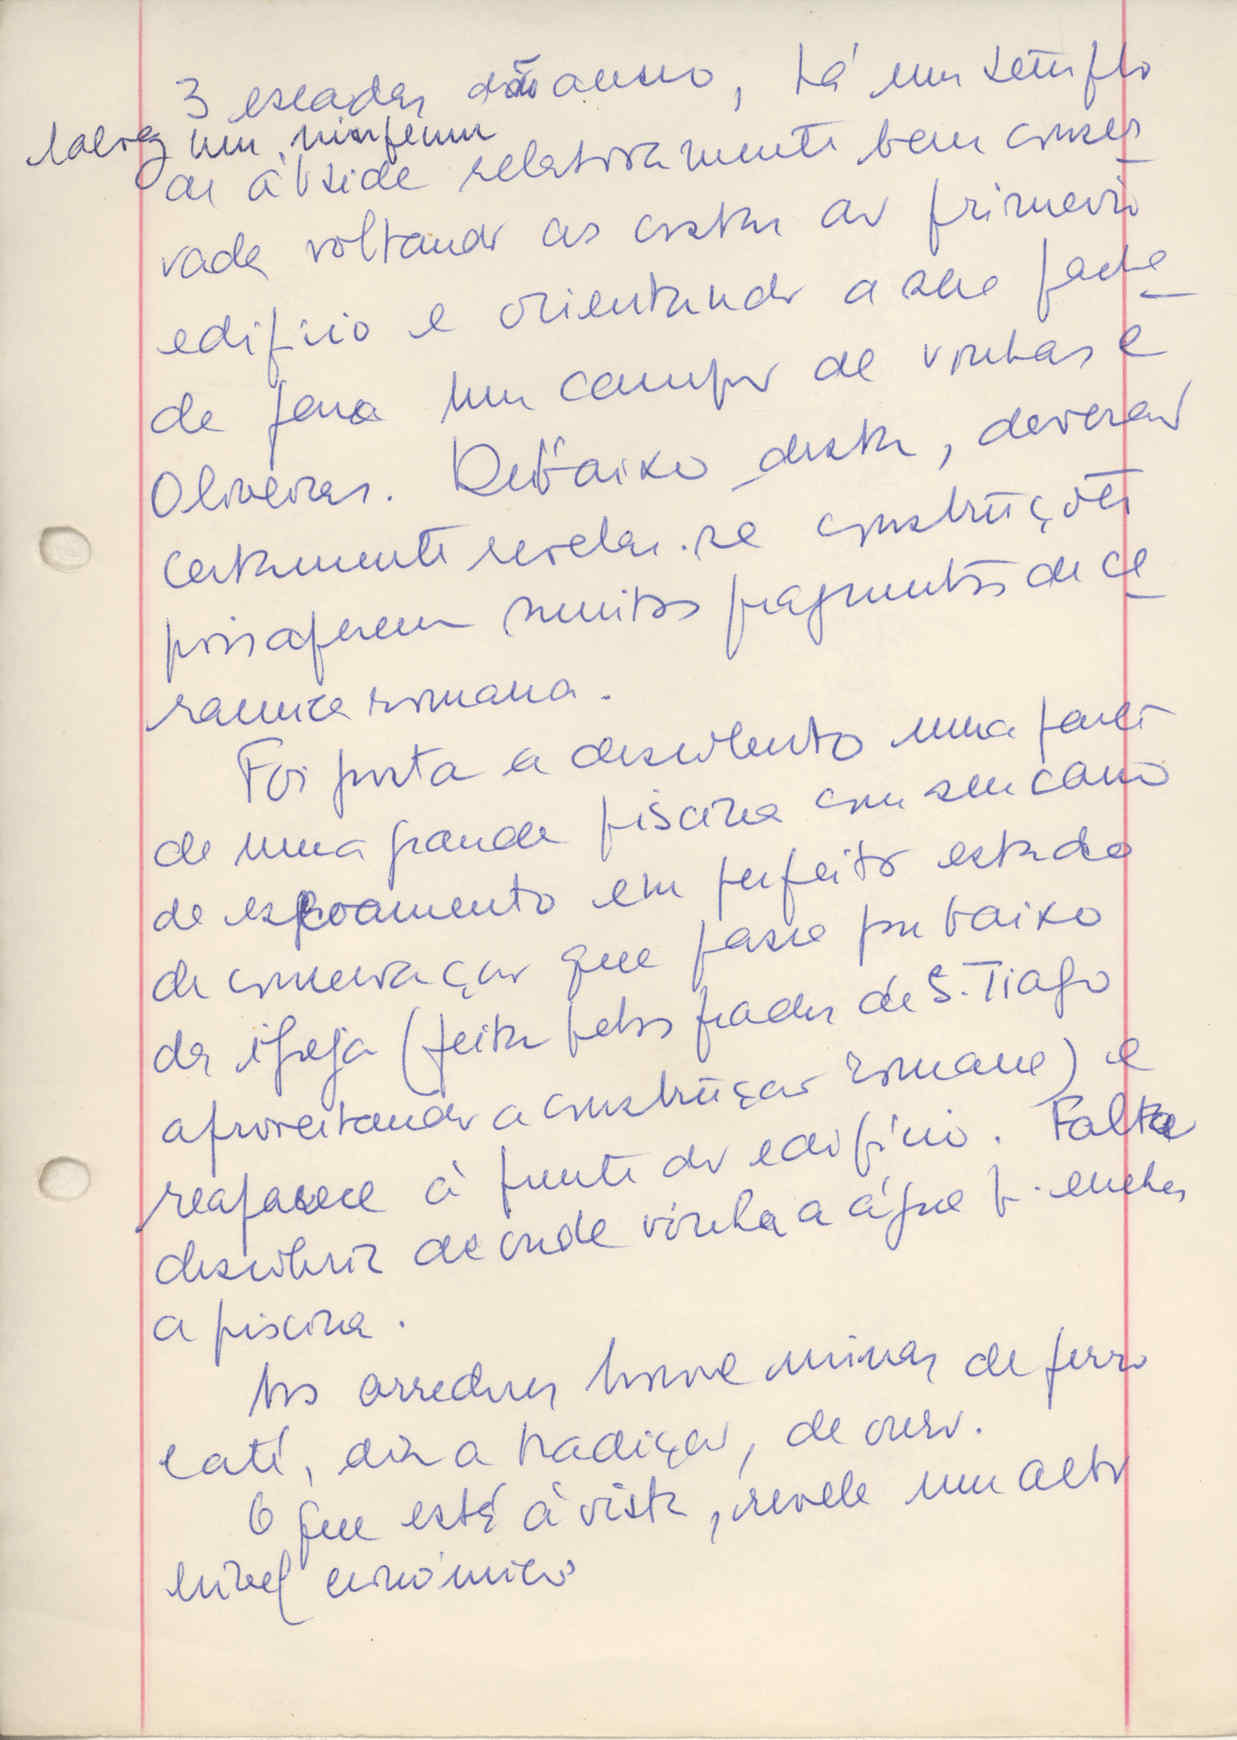 3 escadas dão acesso, há um templo
talvez um ninfeum
de ábside relativamente bem conser
vada voltando as costas ao primeiro
edifício e orientando a sua facha
da para um campo de vinhas e
Oliveiras. Debaixo desta, deverão
certamente revelar-se construções
pois aparecem muitos fragmentos de ce
ramica romana.
Foi posta a descoberto uma parte
de uma grande piscina com seu cano
de escoamento em perfeito estado
de conservação que passa por baixo
da igreja (feita pelos frades de S. Tiago
aproveitando a construção romana) e
reaparece à frente do edifício. Falta
descobrir de onde vinha a água p. encher
a piscina.
Nos arredores houve minas de ferro
e até, diz a tradição, de ouro.
O que está à vista, revela um alto
nível económico